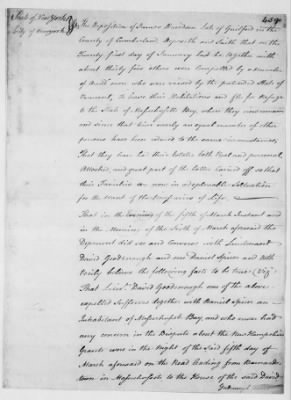 State of New York
City of New york
The Deposition of James Davidson late of Guilford in the
County of Cumberland Deposeth and Saith that on the
Twenty first day of January last he together with
about thirty five others was Compelled by a number
of Armed men who were raised by the pretended State of
Vermont, to leave their Habitations and flee for Refuge
to the State of Massachusetts Bay, where they now remain
and since that time nearly an equal number of other
persons have been reduced to the same circumstances,
That they have had their Estates both real and personal,
Attached, and great part of the latter Carried off so that
their Families are now in a deplorable Situation
for the want of the Necessaries of Life.
That in the Evening of the fifth of March Instant and
in the Morning of the Sixth of March aforesaid the
Deponent did see and Converse with Lieutenant
David Goodenough and one Daniel Spicer and doth
verily believe the following facts to be true (Viz)
That Lieut David Goodenough one of the above
expelled Sufferers together with Daniel Spicer an
Inhabitant of Massachusetts Bay, and who never had
any concern in the Dispute about the New Hampshire
Grants were in the Night of the Said fifth day of
March aforesaid on the Road leading from Barnards
town in Massachusetts to the House of the said David